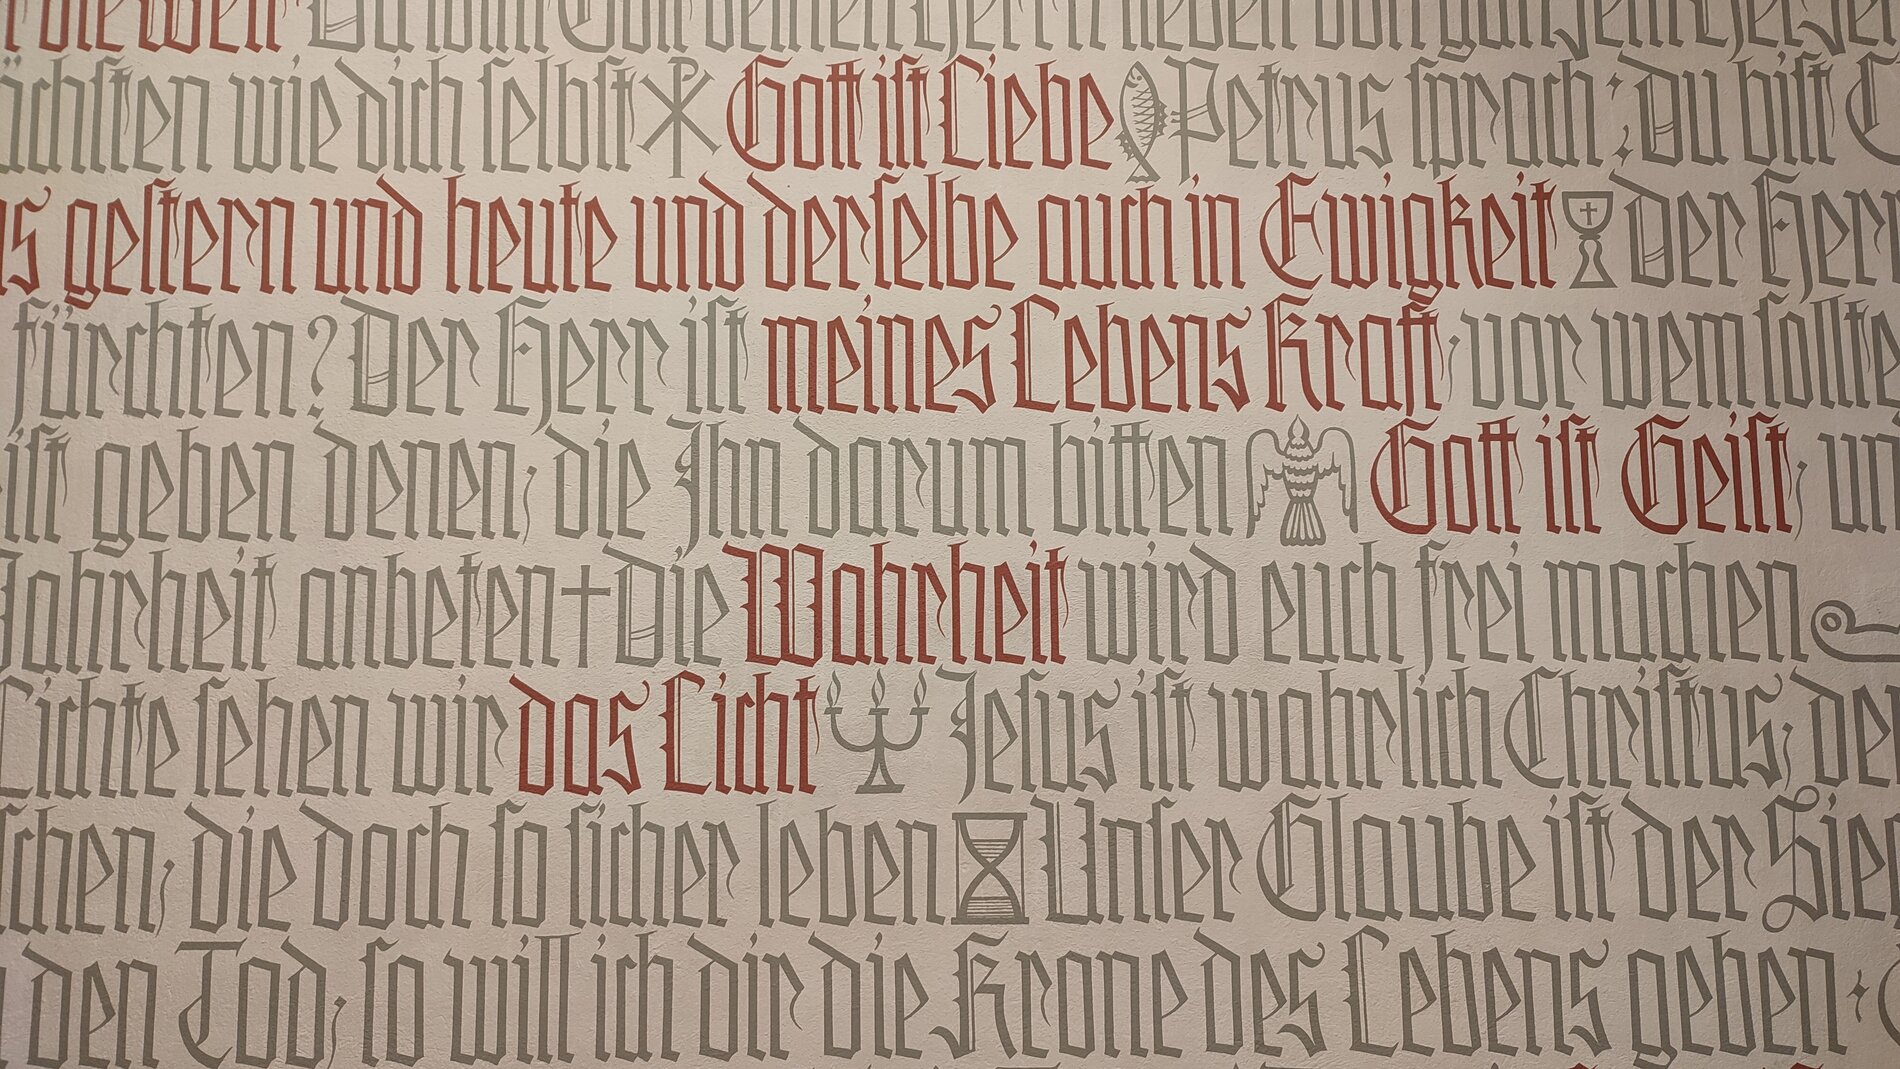 die Welt Du sollst Gott deinen Herrn lieben von ganzem Herzen
ächsten wie dich selbst Gott ist Liebe Petrus sprach: Du bist
gestern und heute und derselbe auch in Ewigkeit Der Herr
fürchten? Der Herr ist meines Lebens Kraft, vor wem sollte
ist geben denen, die Ihn darum bitten Gott ist Geist, un
Wahrheit anbeten Die Wahrheit wird euch frei machen
Lichte sehen wir das Licht Jesus ist wahrlich Christus, der
schen, die doch so sicher leben Unser Glaube ist der Sieg
den Tod, so will ich dir die Krone des Lebens geben ·